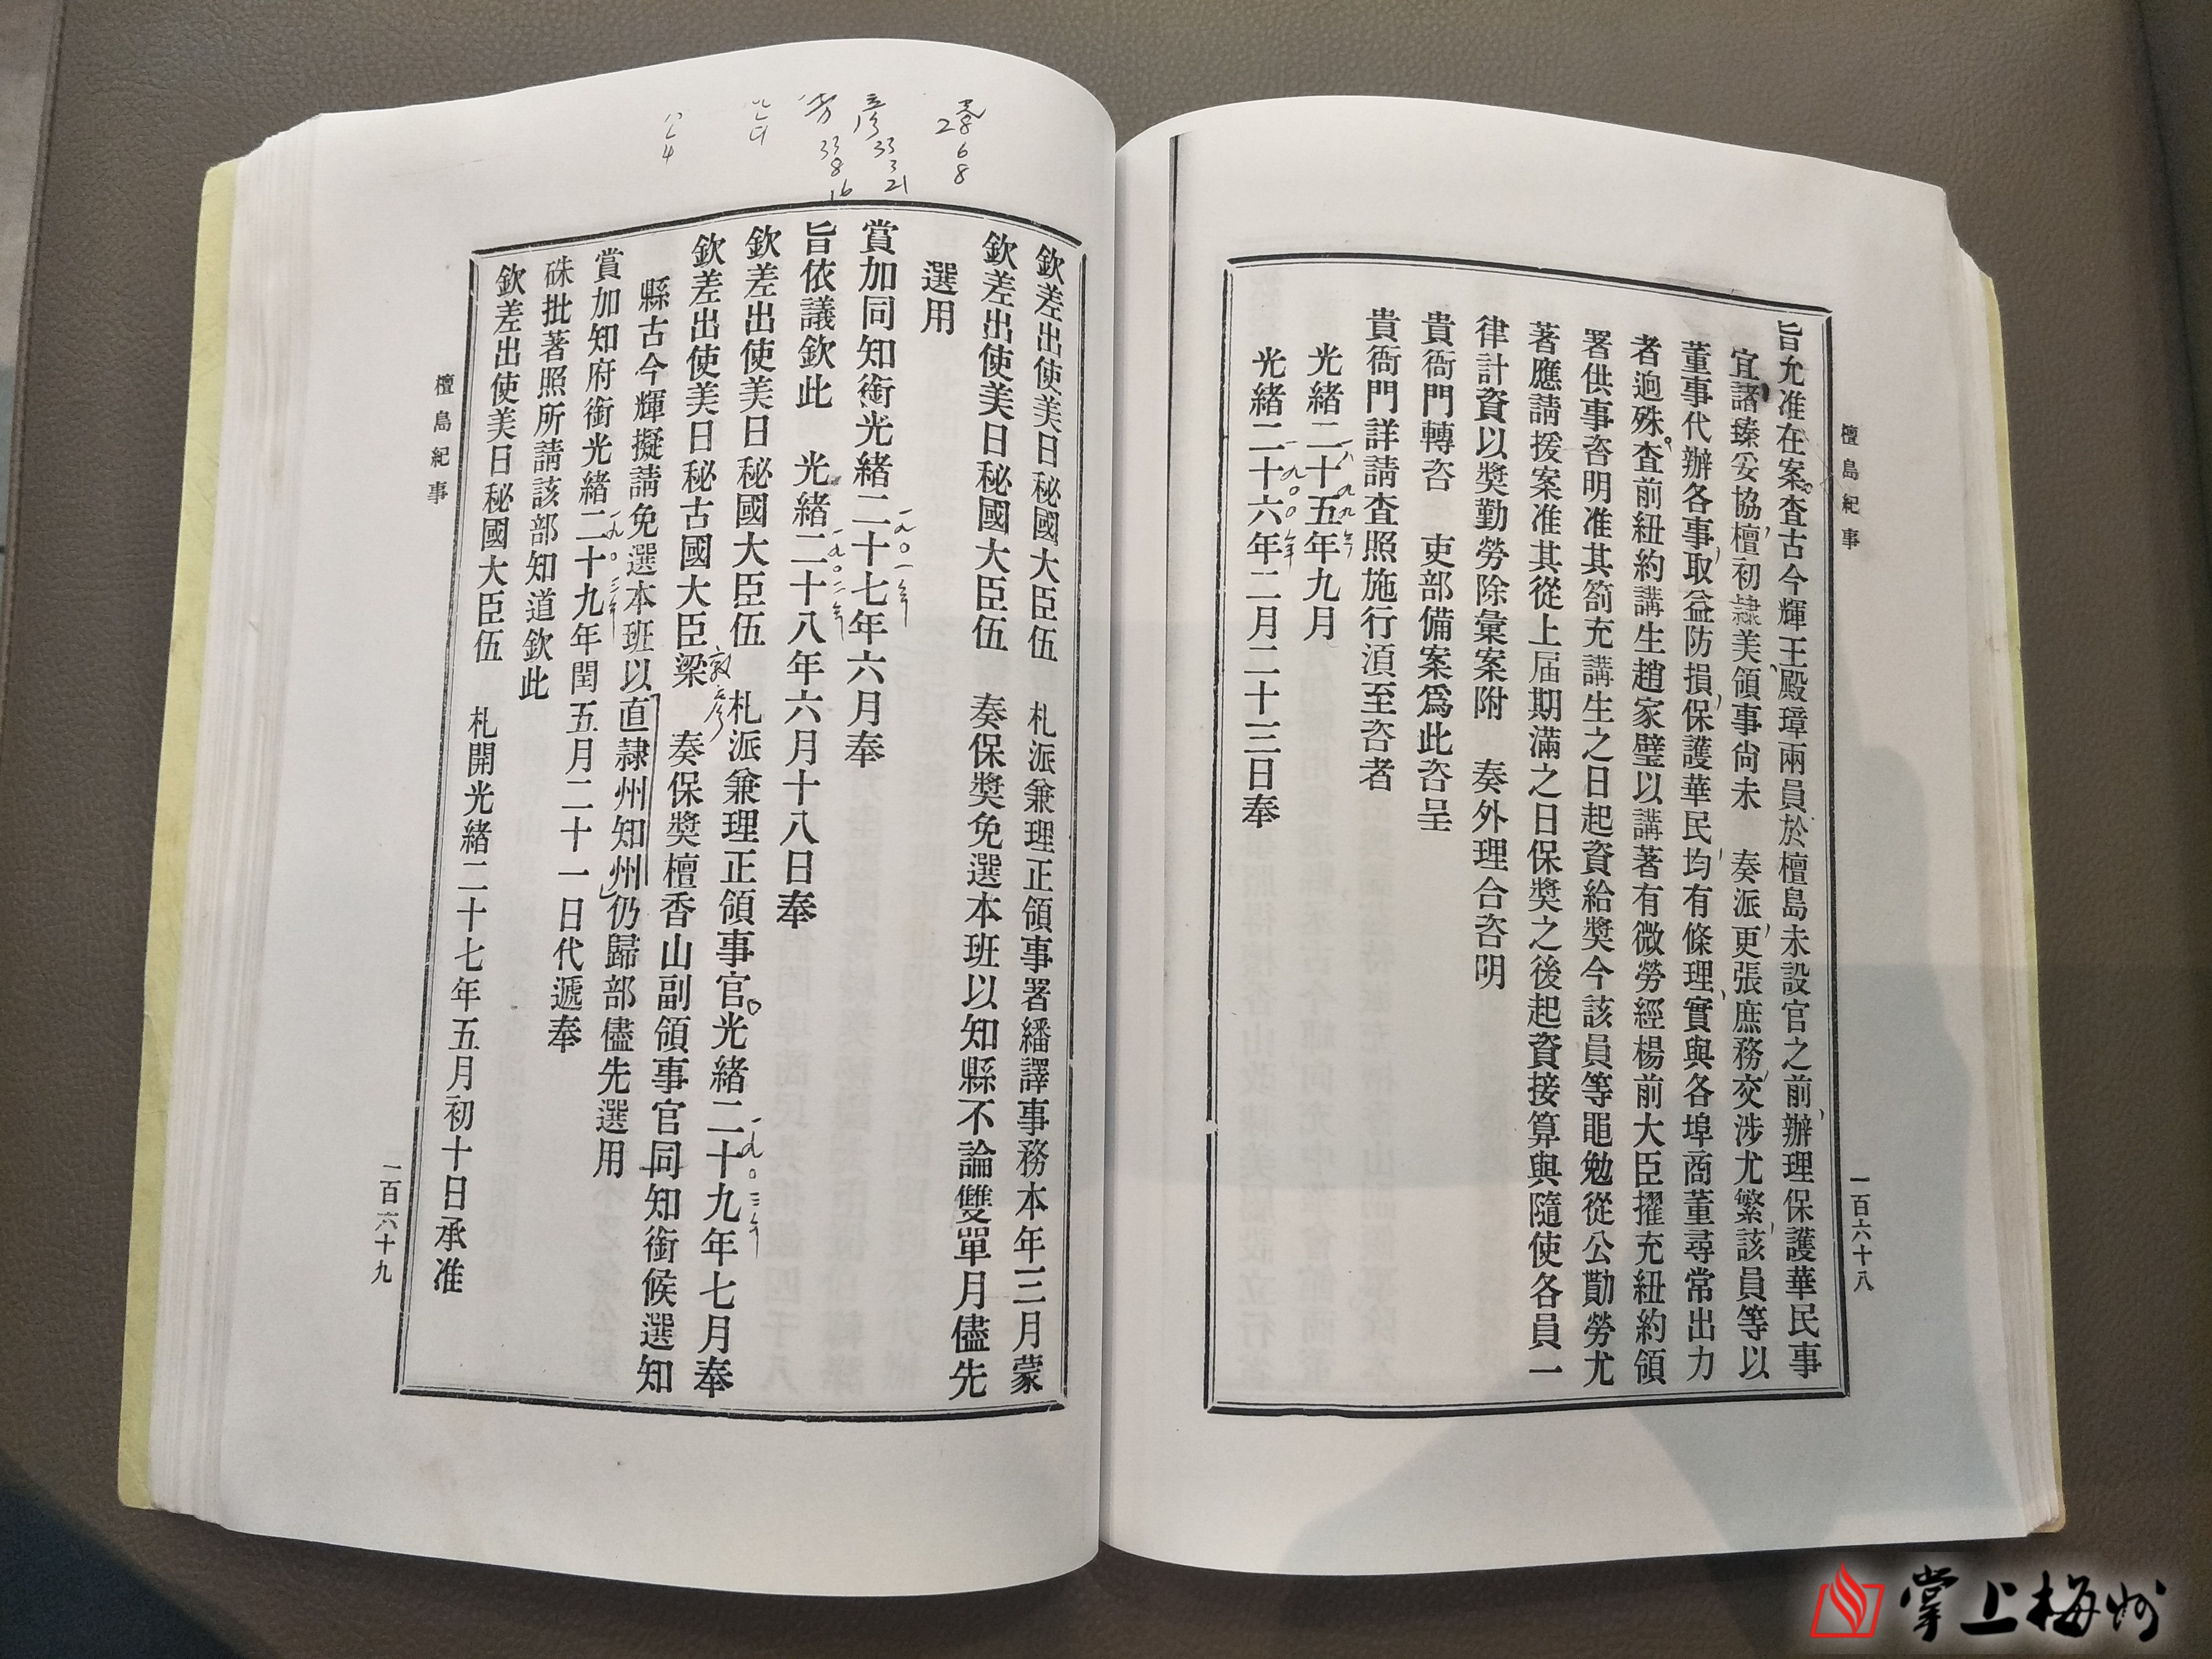 檀島紀事
一百六十八
旨允准在案查古今輝王殿璋兩員於檀島未設官之前辦理保護華民事
宜諸臻妥協檀初隸美領事尚未　奏派更張庶務交涉尤繁該員等以
董事代辦各事取益防損保護華民均有條理實與各埠商董尋常出力
者逈殊查前紐約講生趙家璧以講著有微勞經楊前大臣擢充紐約領
署供事咨明准其箚充講生之日起資給獎今該員等黽勉從公勩勞尤
著應請援案准其從上屆期滿之日保獎之後起資接算與隨使各員一
律計資以獎勤勞除彙案附　奏外理合咨明
貴衙門轉咨　吏部備案爲此咨呈
貴衙門詳請查照施行湏至咨者
光緒二十五年九月
一八九九年
光緒二十六年二月二十三日奉
一九〇〇年
欽差出使美日秘國大臣伍　札派兼理正領事署繙譯事務本年三月蒙
欽差出使美日秘國大臣伍　奏保獎免選本班以知縣不論雙單月儘先
選用
賞加同知銜光緒二十七年六月奉
一九〇一年
旨依議欽此　光緒二十八年六月十八日奉
一九〇二年
欽差出使美日秘國大臣伍　札派兼理正領事官光緒二十九年七月奉
一九〇三年
欽差出使美日秘古國大臣梁　奏保獎檀香山副領事官同知銜候選知
敦彥
縣古今輝擬請免選本班以直隸州知州仍歸部儘先選用
賞加知府銜光緒二十九年閏五月二十一日代遞奉
一九〇三年
硃批著照所請該部知道欽此
欽差出使美日秘國大臣伍　札開光緒二十七年五月初十日承准
檀島紀事
一百六十九
2 6 8
彥 33 3 21
勞 33 8 16
掌上梅州